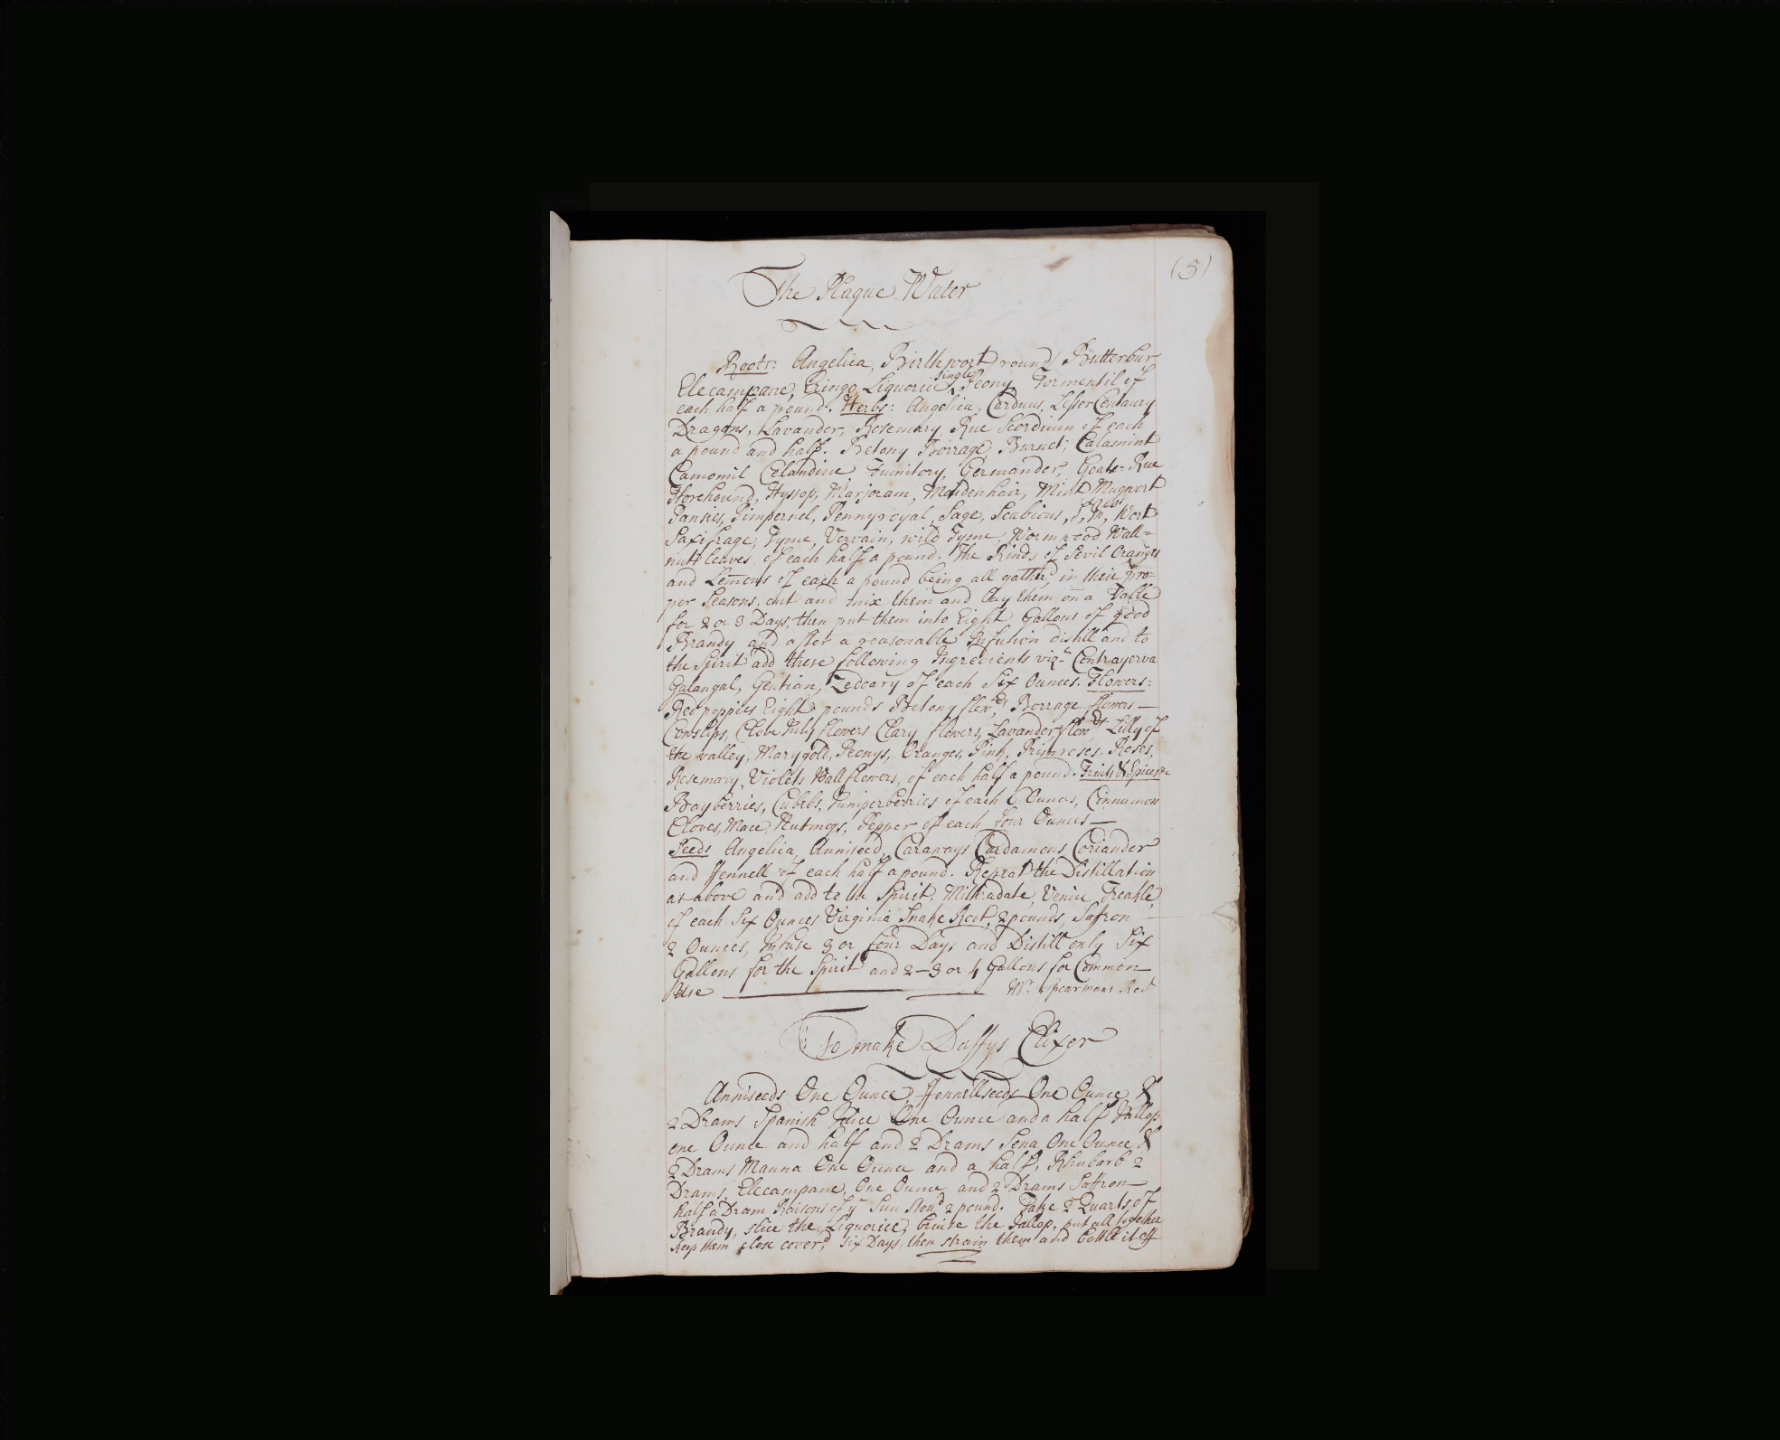 (5)
The Plague Water
Roots: Angelica, Birthwort round Butterbur
Elecampane, Eringo, Liquorice single Peony, Tormentil of
each half a pound. Herbs: Angelica, Carduus, Lesser Centaury
Dragons, Lavander, Rosemary Rue Scordium of each
a pound and half. Betony Borrage, Burnet, Calamint
Camomil Celandine Fumitory, Germander, Goats-Rue
Horehound, Hyssop, Marjoram, Maidenhair, Mint Mugwort
Pansies, Pimpernel, Pennyroyal, Sage, Scabious, St Johns Wort
Saxifrage, Tyme, Vervain, wild Tyme, Wormwood Wall-
nutt leaves, of each half a pound. The Rinds of Sevil Oranges
and Lemons of each a pound being all gather'd in their pro-
per Seasons, cut and mix them and lay them on a Table
for 2 or 3 Days, then put them into Eight Gallons of good
Brandy and after a reasonable Infusion distill and to
the Spirit add these following Ingredients vizt Contrayerva
Galangal, Gentian, Zedoary of each Six Ounces. Flowers:
Red poppies Eight pounds Betony flowrs, Borrage flowers —
Cowslips, Clove July flowers Clary flowers, Lavander flowrs Lilly of
the valley, Marygold, Peonys, Oranges, Pink, Primroses, Roses,
Rosemary, Violets Wallflowers, of each half a pound. Fruits & Spices:
Bayberries, Cubebs, Juniperberries of each 6 Ounces, Cinnamon
Cloves, Mace, Nutmegs, Pepper of each four Ounces —
Seeds Angelica, Anniseed, Caraways Cardamons Coriander
and Fennell of each half a pound. Repeat the Distillation
as above and add to the Spirit, Mithradate, Venice Treakle
of each Six Ounces Virginia Snake Root, 2 pounds, Saffron —
2 Ounces, Infuse 3 or four Days and Distill only Six
Gallons for the Spirit and 2-3 or 4 Gallons for Common
Use — Mr. Spearmans Rect
To make Daffys Elixer
Anniseeds One Ounce, Fennellseeds One Ounce &
2 Drams Spanish Juice One Ounce and a half Jallop
one Ounce and half and 2 Drams Sena One Ounce &
2 Drams Manna One Ounce and a half, Rhubarb 2
Drams, Elecampane One Ounce and 2 Drams Saffron
half a Dram Raisons of ye Sun Ston'd 2 pound. Take 2 Quarts of
Brandy, slice the Liquorice, bruise the Jallop, put all together
keep them close cover'd six Days, then strain them and bottle it off